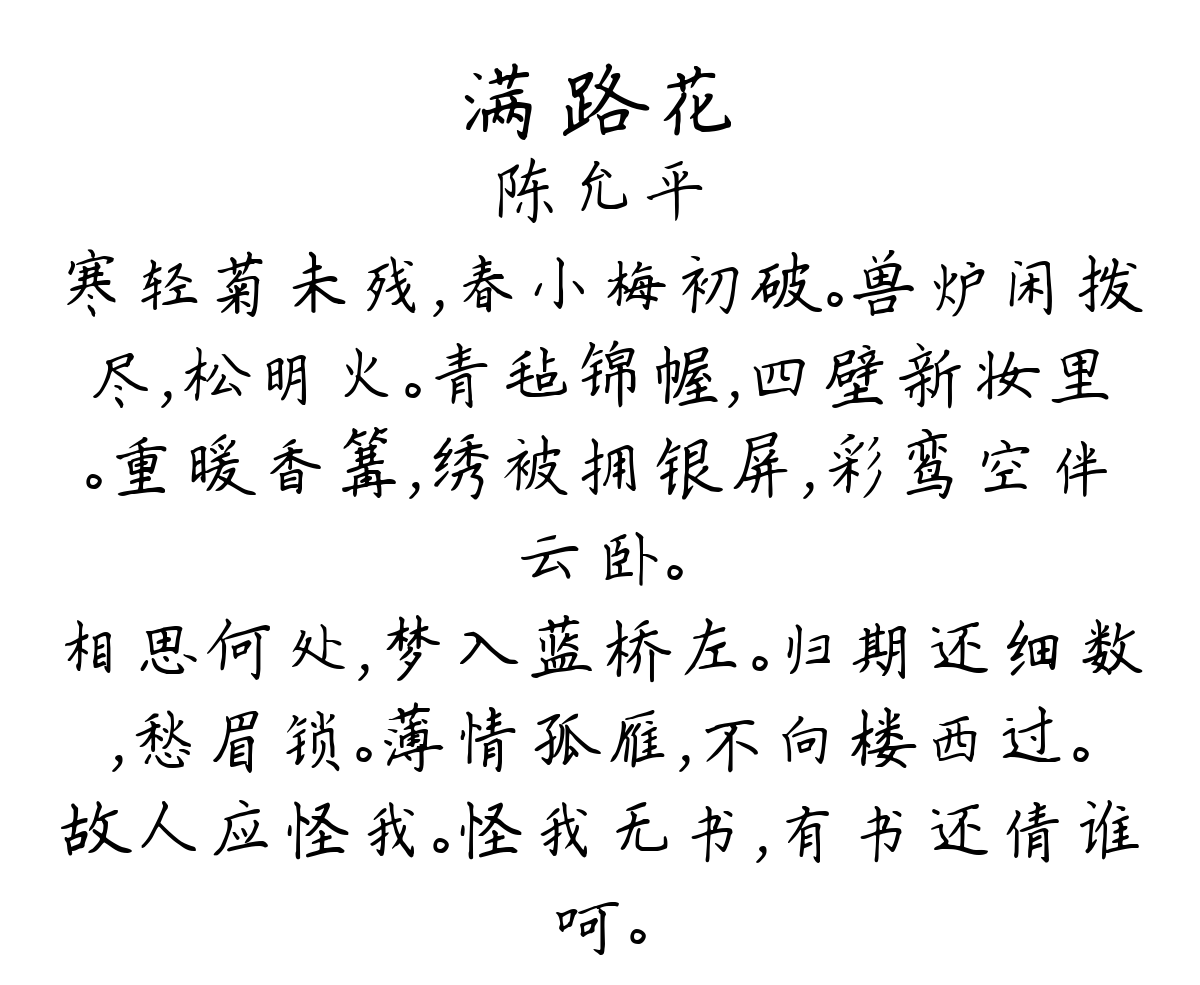 满路花
陈允平
寒轻菊未残,春小梅初破。兽炉闲拨
尽,松明火。青毡锦幄,四壁新妆里
。重暖香篝,绣被拥银屏,彩鸾空伴
云卧。
相思何处,梦入蓝桥左。归期还细数
,愁眉锁。薄情孤雁,不向楼西过。
故人应怪我。怪我无书,有书还倩谁
呵。